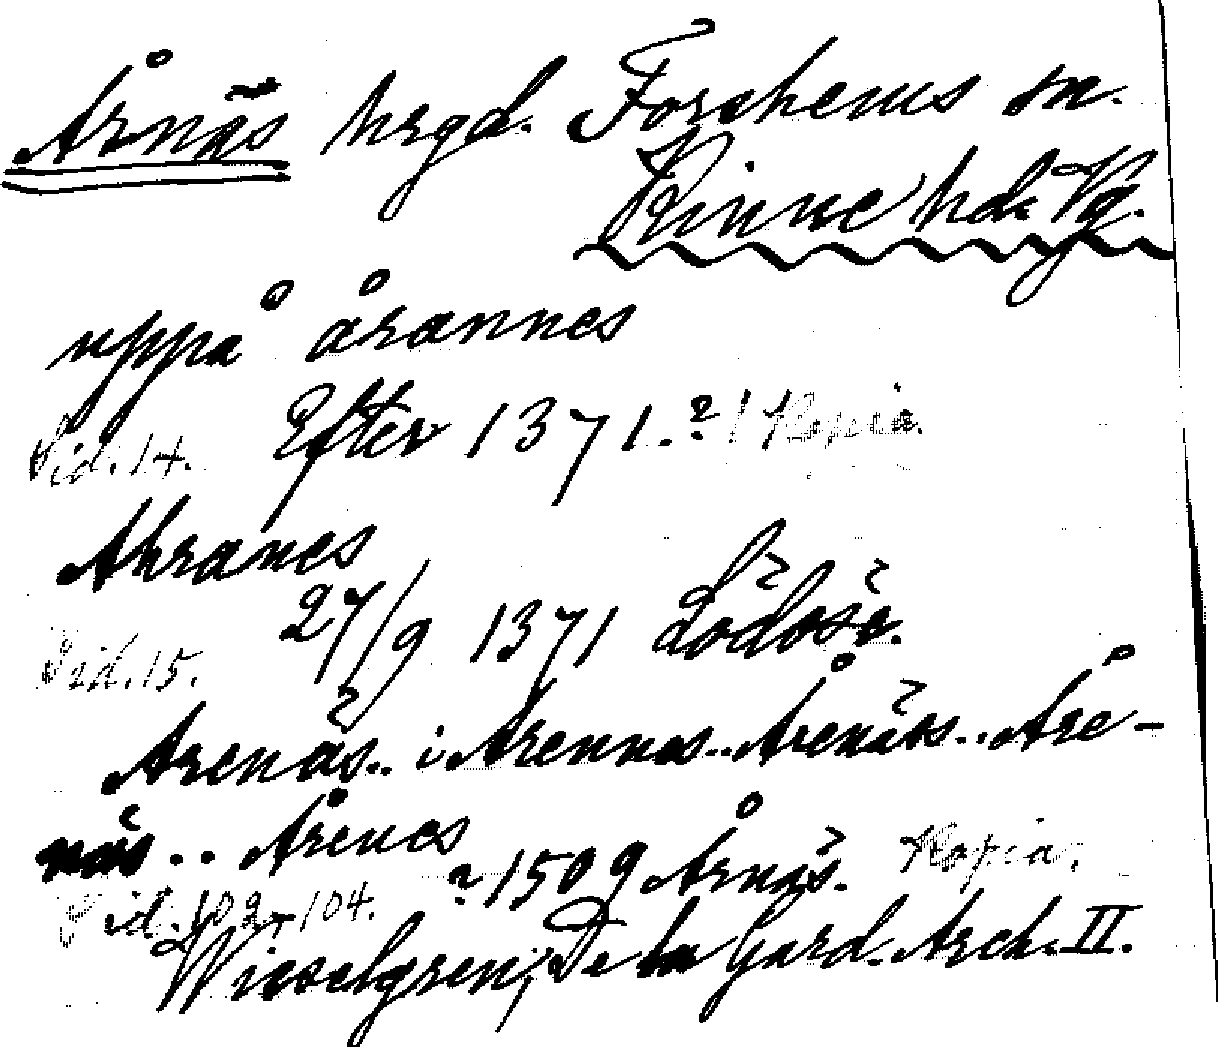 Årnäs hrgd. Forshems sn.
Kinne hd. Vg.
uppå årannes
Sid. 14. Efter 1371.? / Kopia.
Ahranes
Sid. 15. 27/9 1371 Lödöse.
Arenäs.. i Arennes.. Årenäss.. Åre-
näs.. Årenes
Sid. 102-104. ? 1509 Årnäs. Kopia.
Wieselgren, De la Gard. Arch. II.